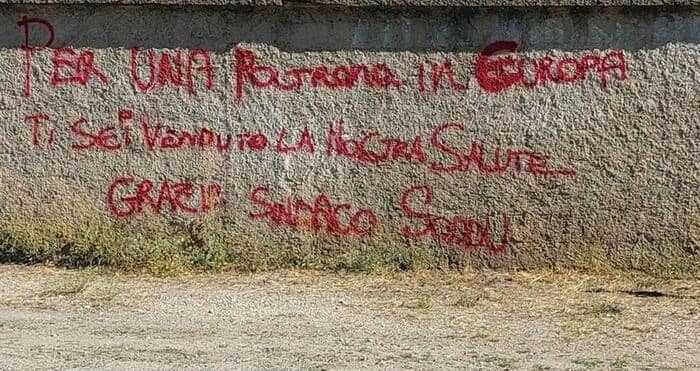 PER UNA POLTRONA IN EUROPA
TI SEI VENDUTO LA NOSTRA SALUTE
GRAZIE SINDACO